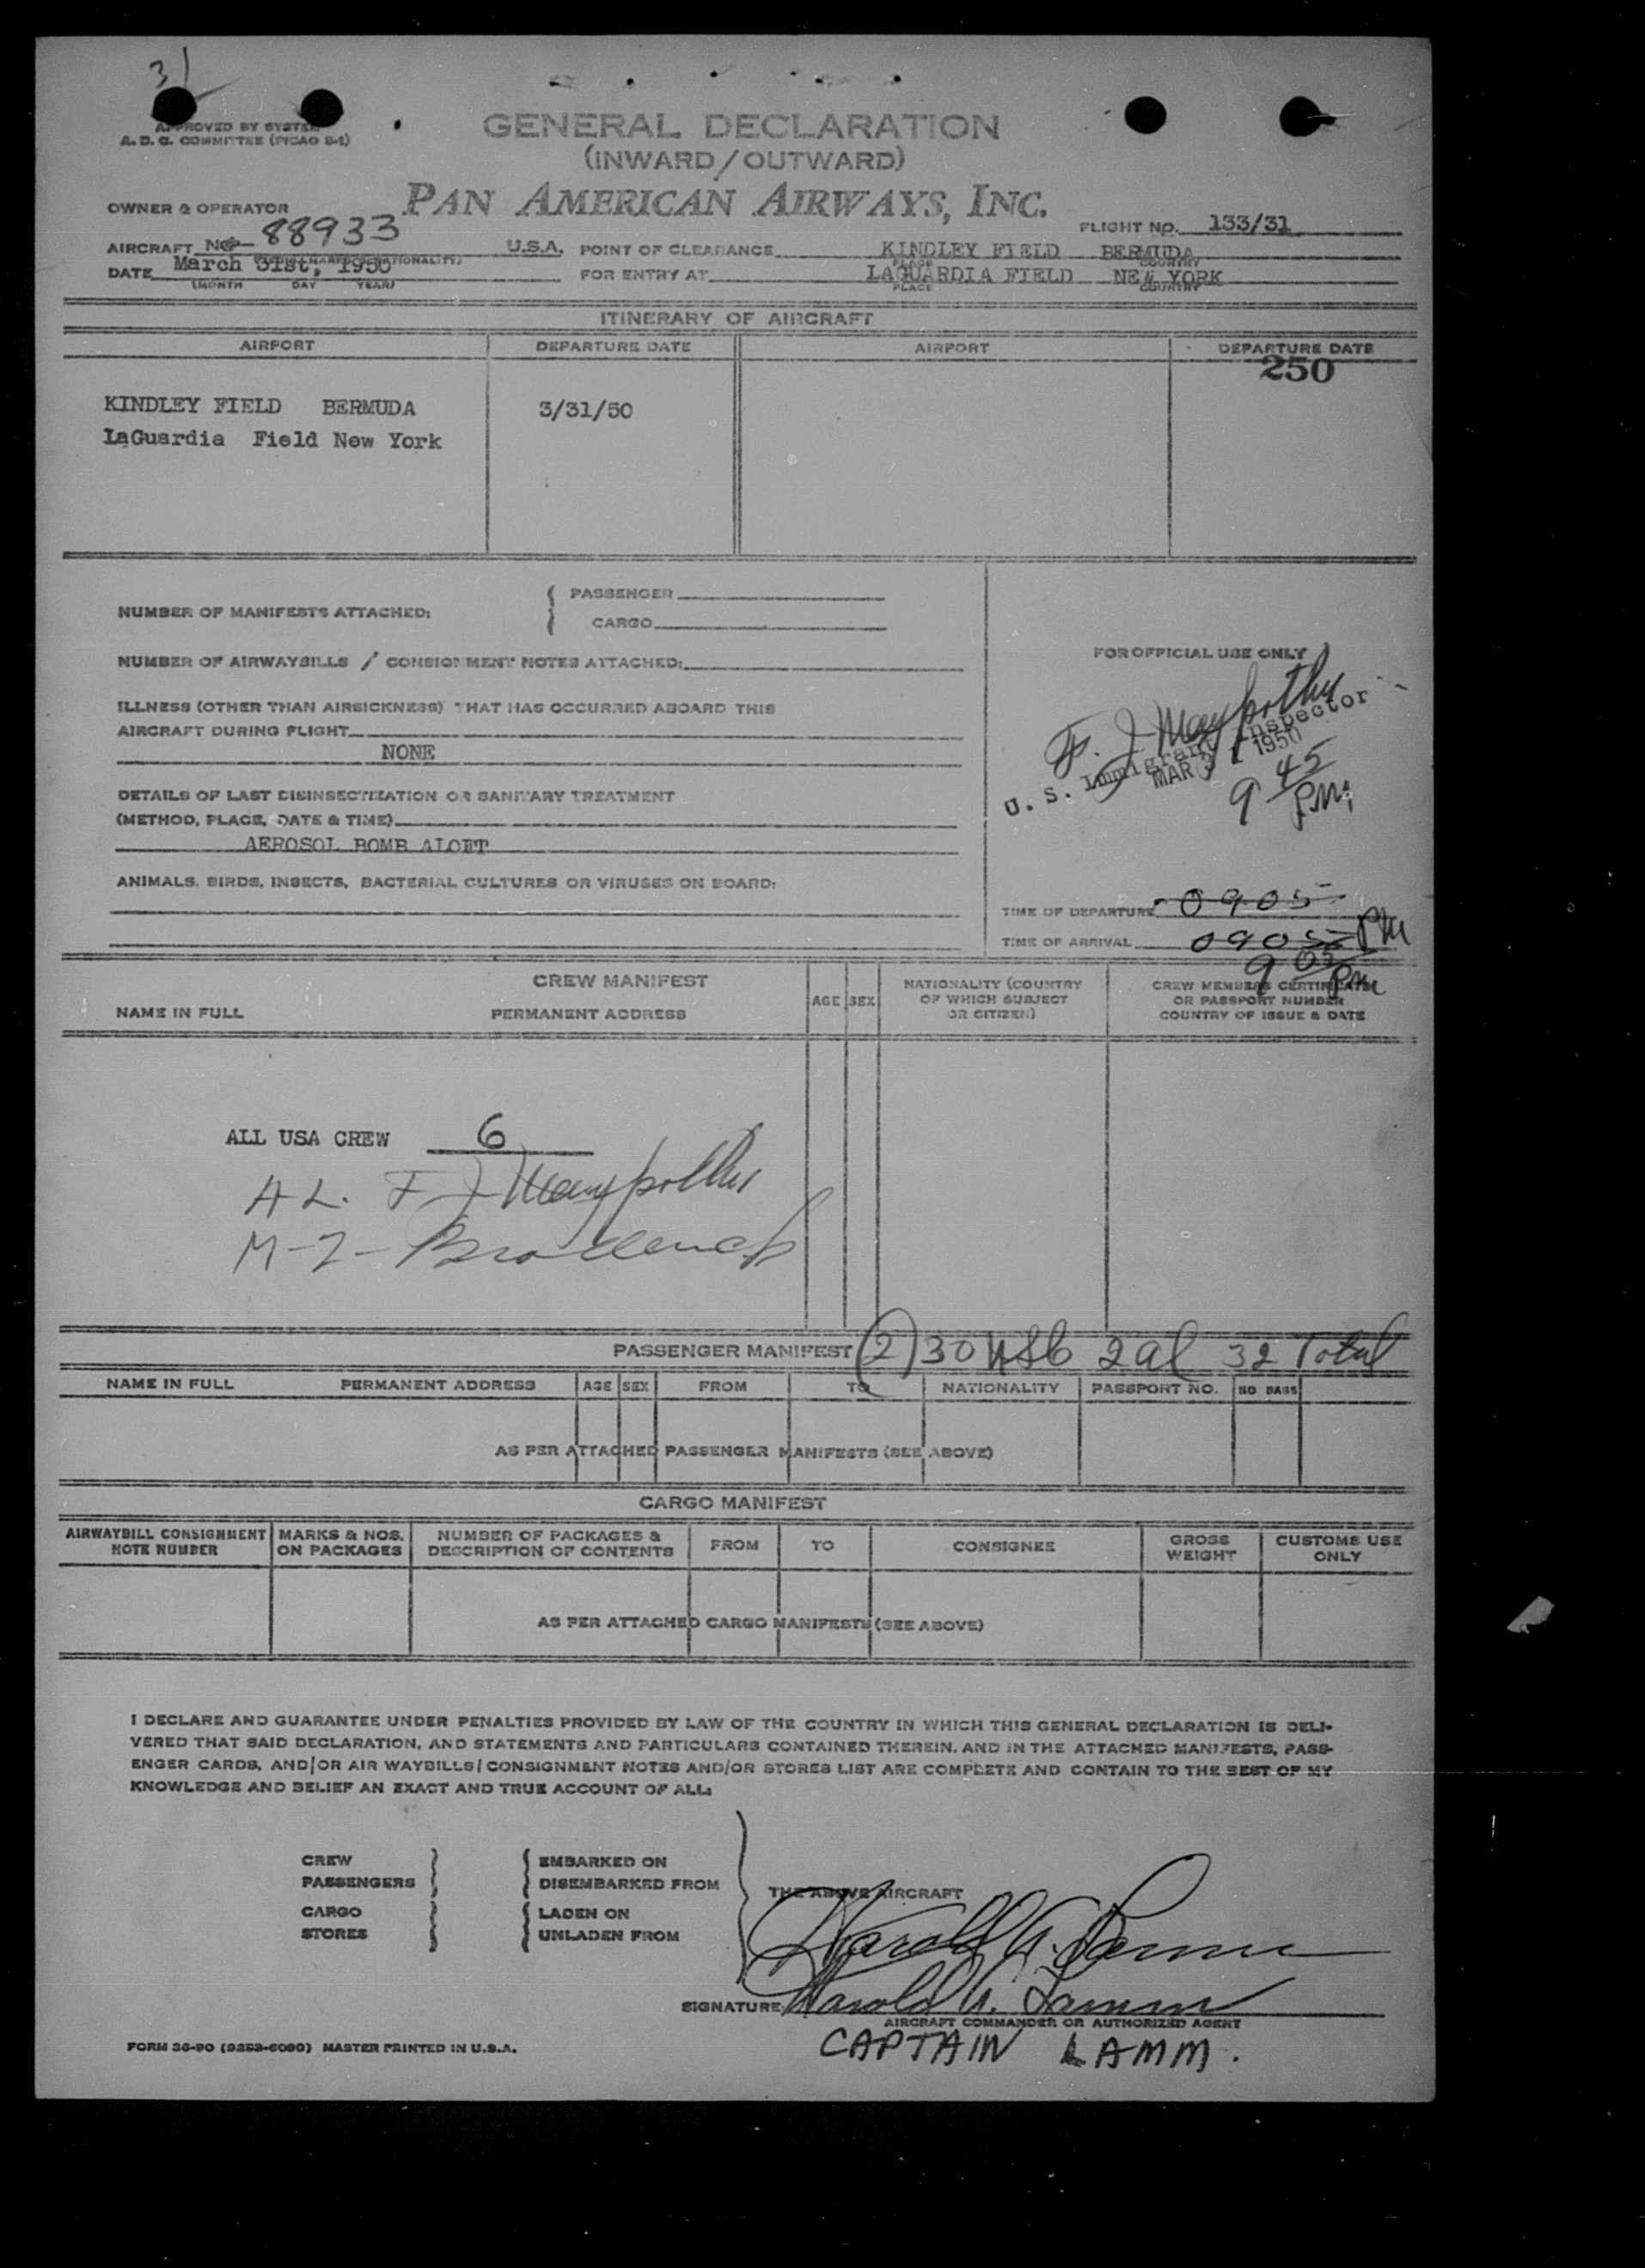 31
APPROVED BY SYSTEM
A. D. C. COMMITTEE (PICAO B-1)
GENERAL DECLARATION
(INWARD/OUTWARD)
PAN AMERICAN AIRWAYS, INC.
OWNER & OPERATOR
FLIGHT NO. 133/31
AIRCRAFT NC 88933 U.S.A. POINT OF CLEARANCE KINDLEY FIELD BERMUDA
PLACE COUNTRY
DATE March 31st, 1950 FOR ENTRY AT LAGUARDIA FIELD NEW YORK
(MONTH DAY YEAR) PLACE COUNTRY
ITINERARY OF AIRCRAFT
AIRPORT DEPARTURE DATE AIRPORT DEPARTURE DATE
250
KINDLEY FIELD BERMUDA 3/31/50
LaGuardia Field New York
NUMBER OF MANIFESTS ATTACHED: PASSENGER
CARGO
NUMBER OF AIRWAYBILLS / CONSIGNMENT NOTES ATTACHED:
ILLNESS (OTHER THAN AIRSICKNESS) THAT HAS OCCURRED ABOARD THIS
AIRCRAFT DURING FLIGHT
NONE
DETAILS OF LAST DISINSECTIZATION OR SANITARY TREATMENT
(METHOD, PLACE, DATE & TIME)
AEROSOL BOMB ALOFT
ANIMALS, BIRDS, INSECTS, BACTERIAL CULTURES OR VIRUSES ON BOARD:
FOR OFFICIAL USE ONLY
F. J.
U. S. Immigrant Inspector
MAR 31 1950
9 45 PM
TIME OF DEPARTURE 0905
TIME OF ARRIVAL 0905 PM
9 05 PM
CREW MANIFEST
NAME IN FULL PERMANENT ADDRESS AGE SEX NATIONALITY (COUNTRY OF WHICH SUBJECT OR CITIZEN) CREW MEMBERS CERTIFICATE OR PASSPORT NUMBER COUNTRY OF ISSUE & DATE
ALL USA CREW 6
PASSENGER MANIFEST (2) 30 USC 2 al 32 Total
NAME IN FULL PERMANENT ADDRESS AGE SEX FROM TO NATIONALITY PASSPORT NO. NO BAGS
AS PER ATTACHED PASSENGER MANIFESTS (SEE ABOVE)
CARGO MANIFEST
AIRWAYBILL CONSIGNMENT NOTE NUMBER MARKS & NOS. ON PACKAGES NUMBER OF PACKAGES & DESCRIPTION OF CONTENTS FROM TO CONSIGNEE GROSS WEIGHT CUSTOMS USE ONLY
AS PER ATTACHED CARGO MANIFESTS (SEE ABOVE)
I DECLARE AND GUARANTEE UNDER PENALTIES PROVIDED BY LAW OF THE COUNTRY IN WHICH THIS GENERAL DECLARATION IS DELI-
VERED THAT SAID DECLARATION, AND STATEMENTS AND PARTICULARS CONTAINED THEREIN, AND IN THE ATTACHED MANIFESTS, PASS-
ENGER CARDS, AND/OR AIR WAYBILLS/CONSIGNMENT NOTES AND/OR STORES LIST ARE COMPLETE AND CONTAIN TO THE BEST OF MY
KNOWLEDGE AND BELIEF AN EXACT AND TRUE ACCOUNT OF ALL:
CREW EMBARKED ON
PASSENGERS DISEMBARKED FROM
THE ABOVE AIRCRAFT
CARGO LADEN ON
STORES UNLADEN FROM
Harold A. Lamm
SIGNATURE: Harold A. Lamm
AIRCRAFT COMMANDER OR AUTHORIZED AGENT
CAPTAIN LAMM.
FORM 36-90 (9253-6090) MASTER PRINTED IN U.S.A.